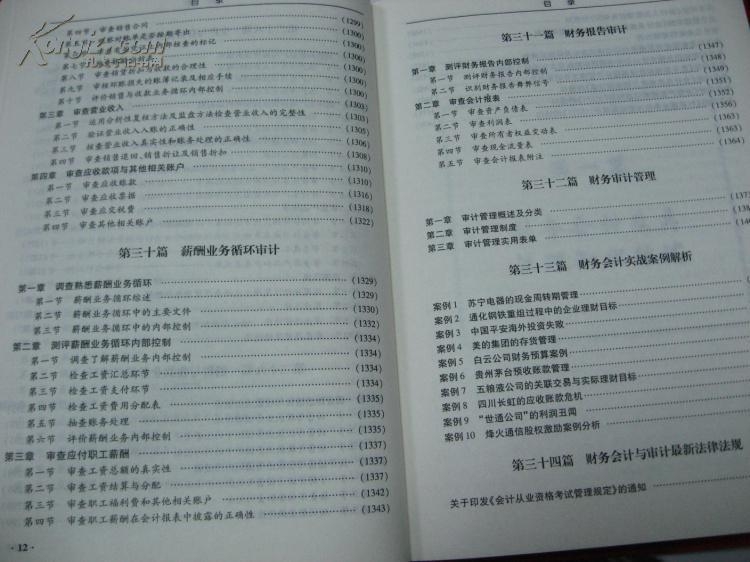 目 录
第四节 审查销售合同 (1299)
(1300)
(1300)
(1300)
第八节 审查销货折扣与收款的合理性 (1300)
第九节 审核坏账损失的账簿记录及相应手续 (1300)
第十节 评价销售与收款业务循环内部控制 (1303)
第三章 审查营业收入 (1303)
第一节 运用分析性复核方法及监盘方法检查营业收入的完整性 (1305)
第二节 验证营业收入入账的正确性
第三节 核查营业收入真实性和账务处理的正确性
第四节 审查销售退回、销售折让及销售折扣
第四章 审查应收款项与其他相关账户 (1310)
第一节 审查应收账款 (1310)
第二节 审查应收票据 (1316)
第三节 审查应交税费 (1318)
第四节 审查其他相关账户 (1322)
第三十篇 薪酬业务循环审计
第一章 调查熟悉薪酬业务循环 (1329)
第一节 薪酬业务循环综述 (1329)
第二节 薪酬业务循环中的主要文件 (1330)
第三节 薪酬业务循环中的内部控制 (1332)
第二章 测评薪酬业务循环内部控制 (1334)
第一节 调查了解薪酬业务内部控制 (1334)
第二节 检查工资汇总环节 (1334)
第三节 检查工资支付环节 (1334)
第四节 检查工资费用分配表 (1335)
第五节 抽查账务处理 (1335)
第六节 评价薪酬业务内部控制 (1335)
第三章 审查应付职工薪酬 (1337)
第一节 审查工资总额的真实性 (1337)
第二节 审查工资结算与分配 (1337)
第三节 审查职工福利费和其他相关账户 (1342)
第四节 审查职工薪酬在会计报表中披露的正确性 (1343)
· 12 ·
目 录
第三十一篇 财务报告审计
第一章 测评财务报告内部控制 (1347)
第一节 测评财务报告内部控制 (1348)
第二节 识别财务报告舞弊信号 (1349)
第二章 审查会计报表 (1351)
第一节 审查资产负债表 (1352)
第二节 审查利润表 (1356)
第三节 审查所有者权益变动表 (1363)
第四节 审查现金流量表 (1363)
第五节 审查会计报表附注 (1364)
第三十二篇 财务审计管理
第一章 审计管理概述及分类
第二章 审计管理制度
第三章 审计管理实用表单
第三十三篇 财务会计实战案例解析
案例1 苏宁电器的现金周转期管理
案例2 通化钢铁重组过程中的企业理财目标
案例3 中国平安海外投资失败
案例4 美的集团的存货管理
案例5 白云公司财务预算案例
案例6 贵州茅台预收账款管理
案例7 五粮液公司的关联交易与实际理财目标
案例8 四川长虹的应收账款危机
案例9 “世通公司”的利润丑闻
案例10 烽火通信股权激励案例分析
第三十四篇 财务会计与审计最新法律法规
关于印发《会计从业资格考试管理规定》的通知